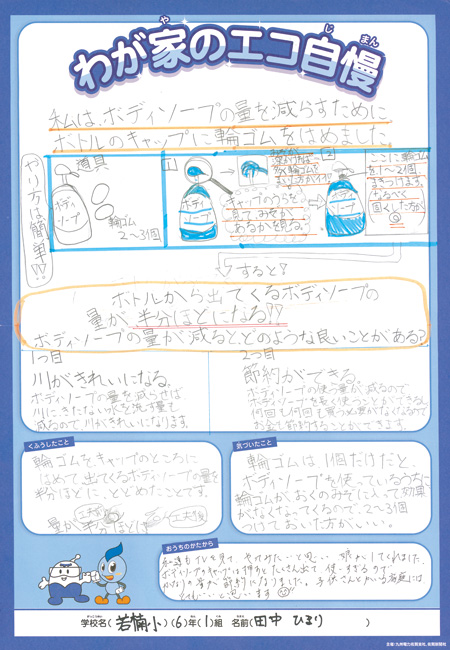 わが家のエコ自慢
私は、ボディソープの量を減らすために
ボトルのキャップに輪ゴムをはめました
やり方は簡単!!
道具
ボディソープ
輪ゴム
2〜3個
1
ボディソープ
キャップのうらを
見て、みぞが
あるか見る。
2
ボディソープ
ここに輪ゴム
を1〜2個
まきつけます。
なるべく
固くした方が
すると?
ボトルから出てくるボディソープの
量が半分ほどになる!!
ボディソープの量が減ると、どのような良いことがある?
1つ目
川がきれいになる。
ボディソープの量を減らせば、
川に、きたない水を流す量も
減るので、川がきれいになります。
2つ目
節約ができる。
ボディソープの使う量が減るので
ボディソープを長く使うことができるし
何回も何回も買う必要がなくなるので
お金も節約することができます。
くふうしたこと
輪ゴムをキャップのところに
はめて出てくるボディソープの量を
半分ほどに、とどめたことです。
量が半分ほどに
工夫後
気づいたこと
輪ゴムは1個だけだと、
ボディソープを使っているうちに
輪ゴムがおくのみぞに入って効果
がなくなってくるので、2〜3個
つけておいた方がいい。
おうちのかたから
学校名(若楠小)(6)年(1)組 名前(田中 ひまり)
主催:九州電力佐賀支社、佐賀新聞社